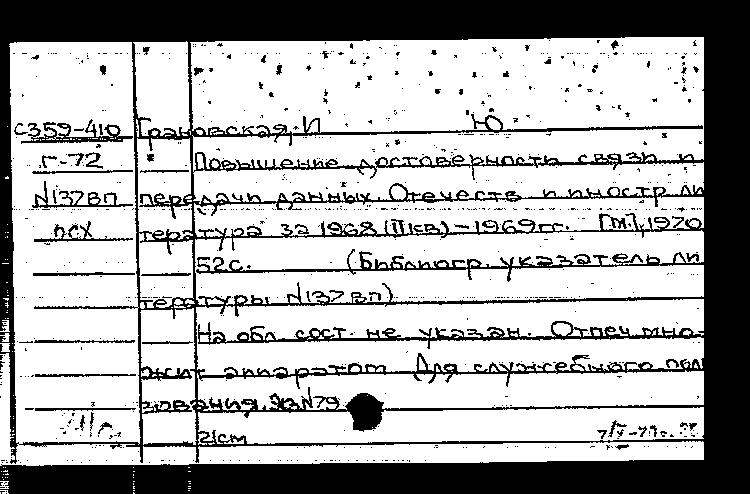 С359-410 Грановская, И Ю
Г-72 Повышение достоверность связи и
N137вп передачи данных. Отечеств и иностр ли
псх тература за 1968 (II кв) - 1969 гг. [М.], 1970
52с. (Библиогр. указатель ли
тературы N137 вп)
На обл сост. не указан. Отпеч мно-
жит аппаратом Для служебного поль
зования. Экз N79
21см